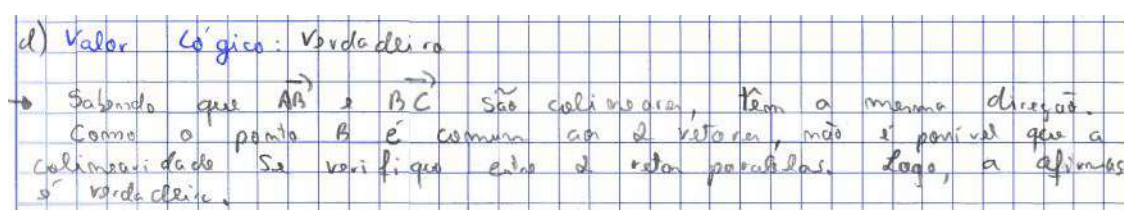 d) Valor Lógico: Verdadeiro
→ Sabendo que AB e BC são colineares, têm a mesma direção.
Como o ponto B é comum aos 2 vetores, não é possível que a
colinearidade se verifique entre 2 retas paralelas. Logo, a afirmas
é verdadeira.